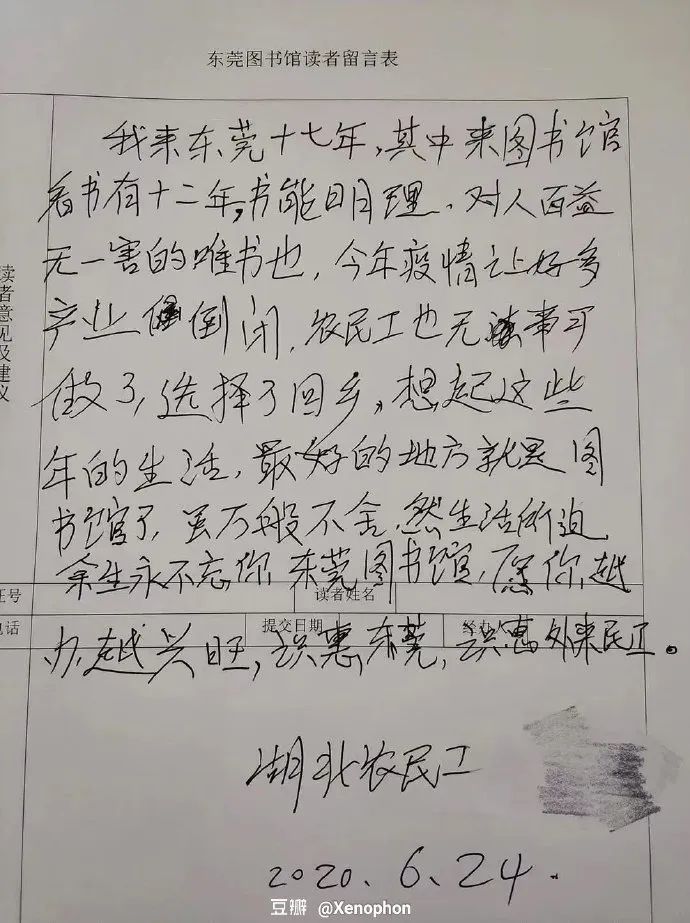 东莞图书馆读者留言表
读者意见及建议
我来东莞十七年,其中来图书馆
看书有十二年,书能明理、对人百益
无一害的唯书也,今年疫情让好多
产业倒闭,农民工也无事可
做了,选择了回乡,想起这些
年的生活,最好的地方就是图
书馆了,虽万般不舍,然生活所迫
余生永不忘你,东莞图书馆,愿你越
证号
读者姓名
电话
提交日期
经办人
办越兴旺,识惠东莞,识惠外来民工。
湖北农民工
2020、6、24.
豆瓣 @Xenophon